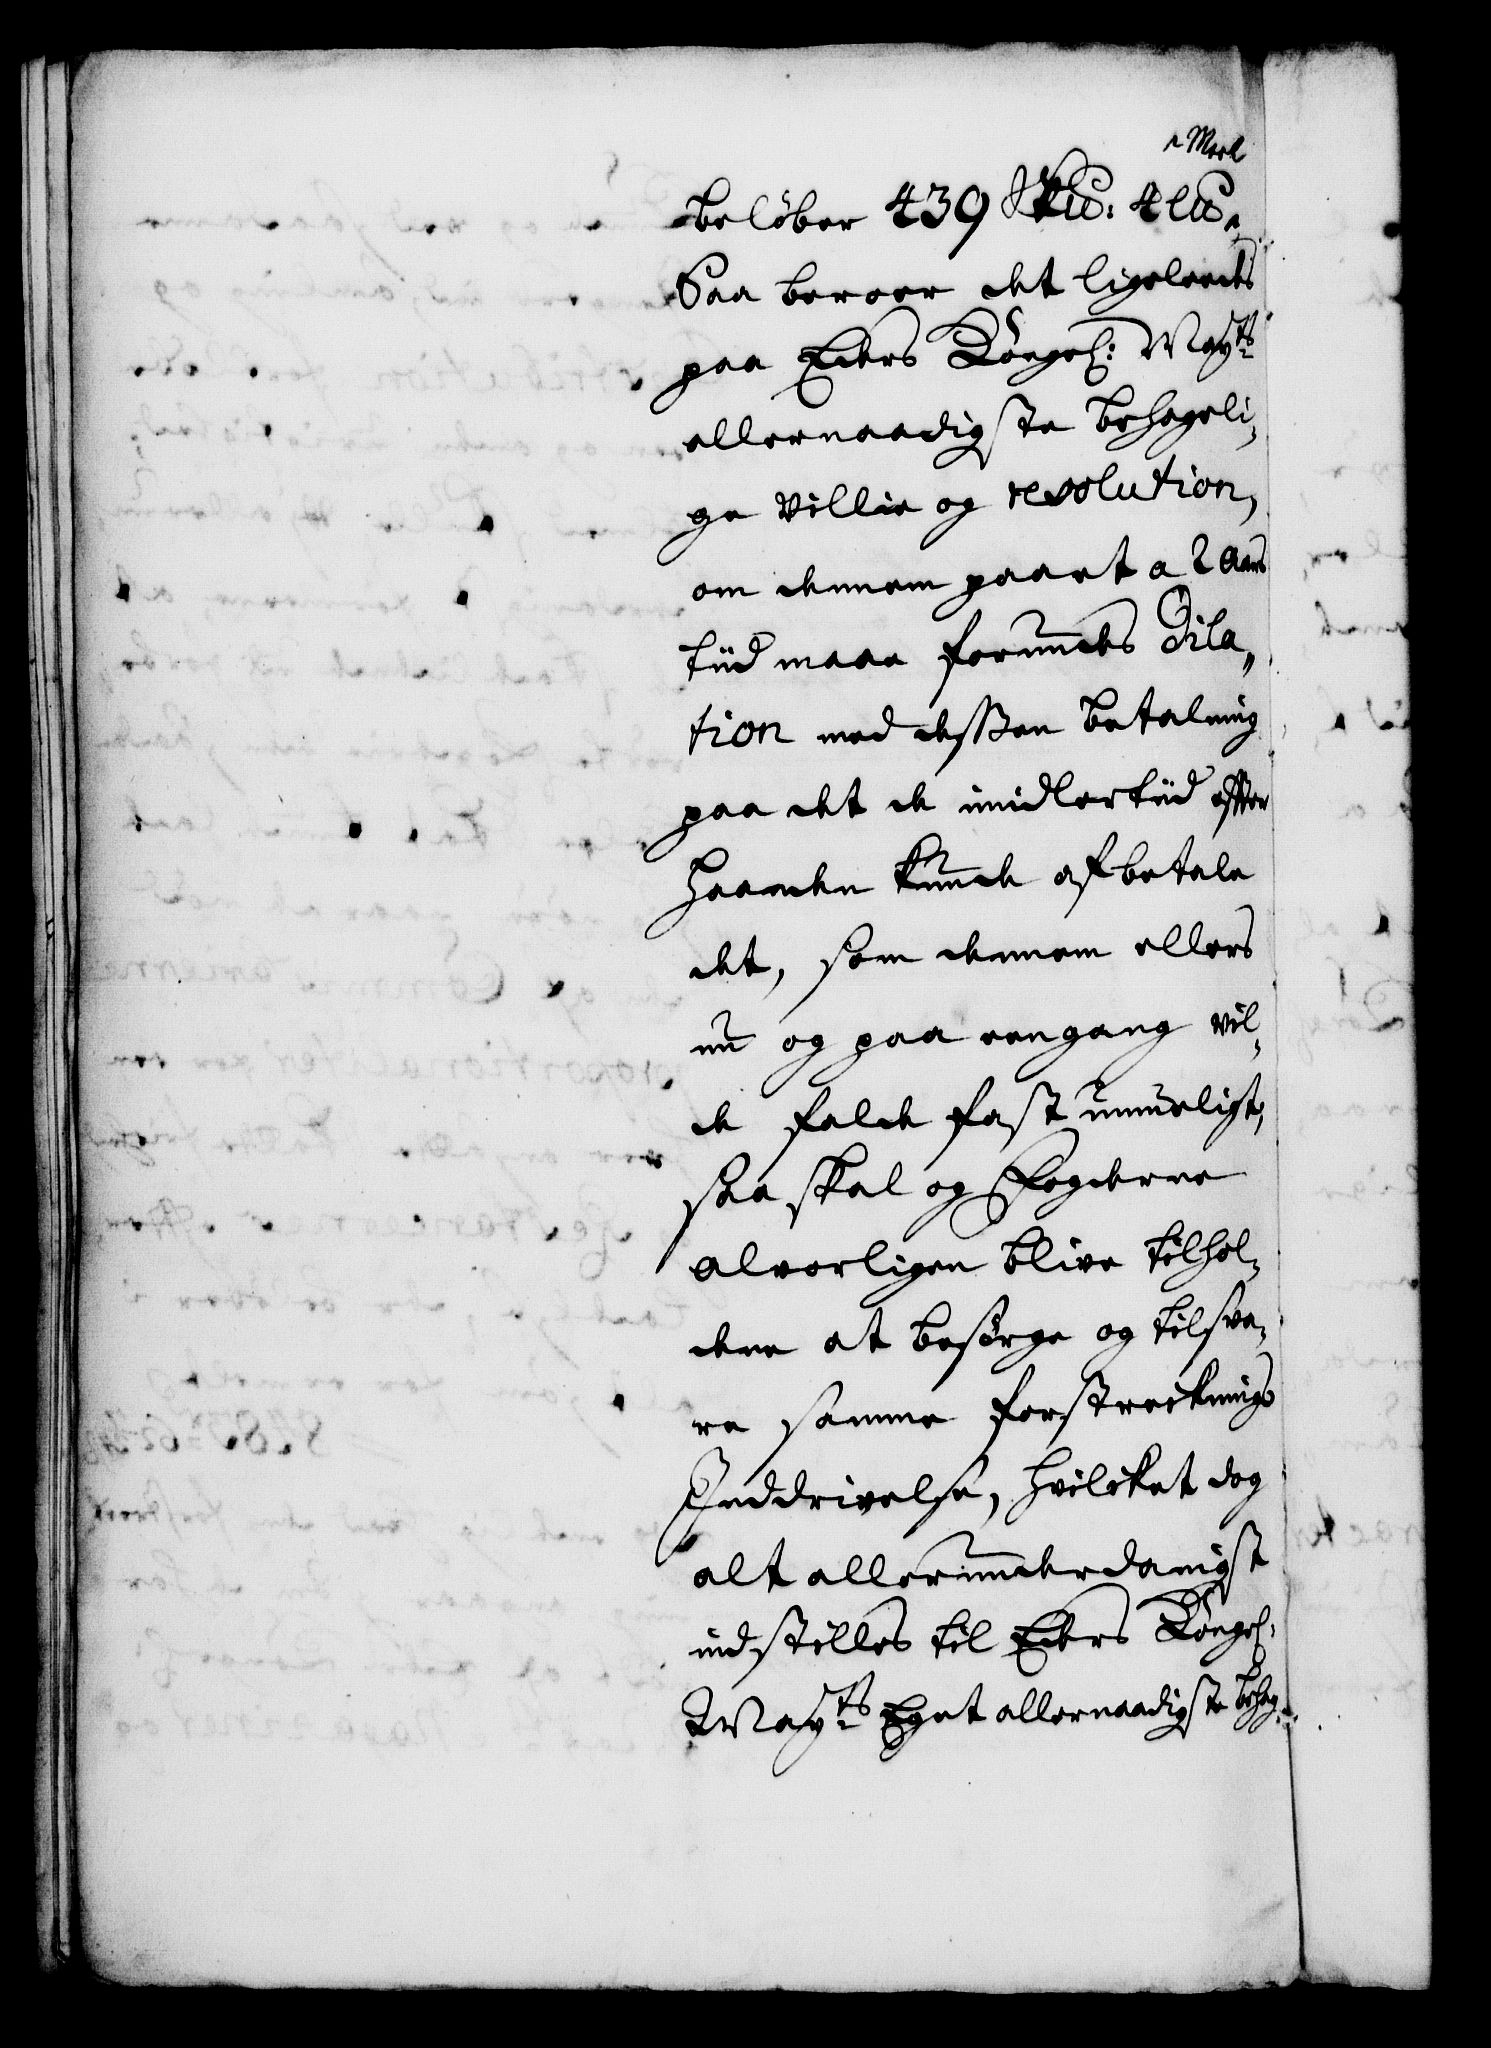 Meel
beløber 439 Sk℔: 4 ℔
Saa beroer det ligeleedes
paa Eders Kongel: Mayts
allernaadigste behageli-
ge Villie og resolution,
om dennem paa et a 2 Aars
tiid maae forundes Dila-
tion med dessen betalning
paa det de imidlertiid effter
haanden kunde afbetale
det, som dennem ellers
nu og paa eengang vil-
de falde fast umueligt,
saa skal og Fogderne
alvorligen blive tilhol-
dene at besørge og tilsva-
re samme forstrecknings
Inddrivelse, hvilcket dog
alt allerunderdanigst
indstilles til Eders Kongel:
Mayts Eget allernaadigste behag-